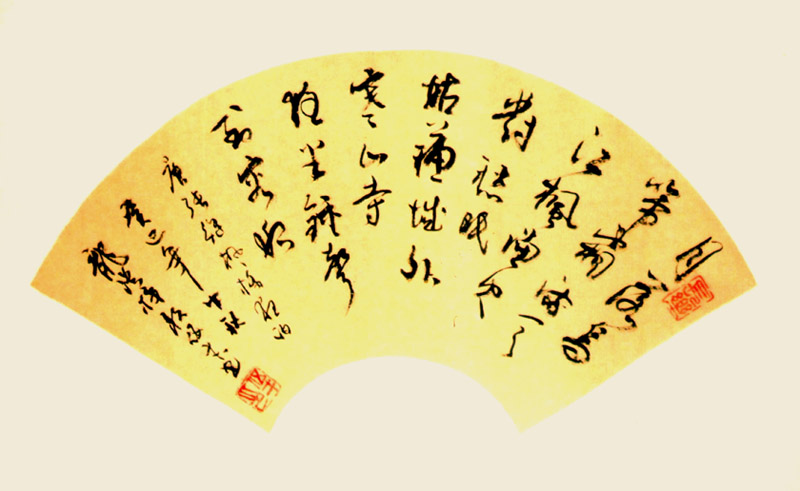 月落烏
啼霜滿天
江楓漁火
對愁眠
姑蘇城外
寒山寺
夜半鐘聲
到客船
唐張繼楓橋夜泊
癸巳年中秋
龍 書